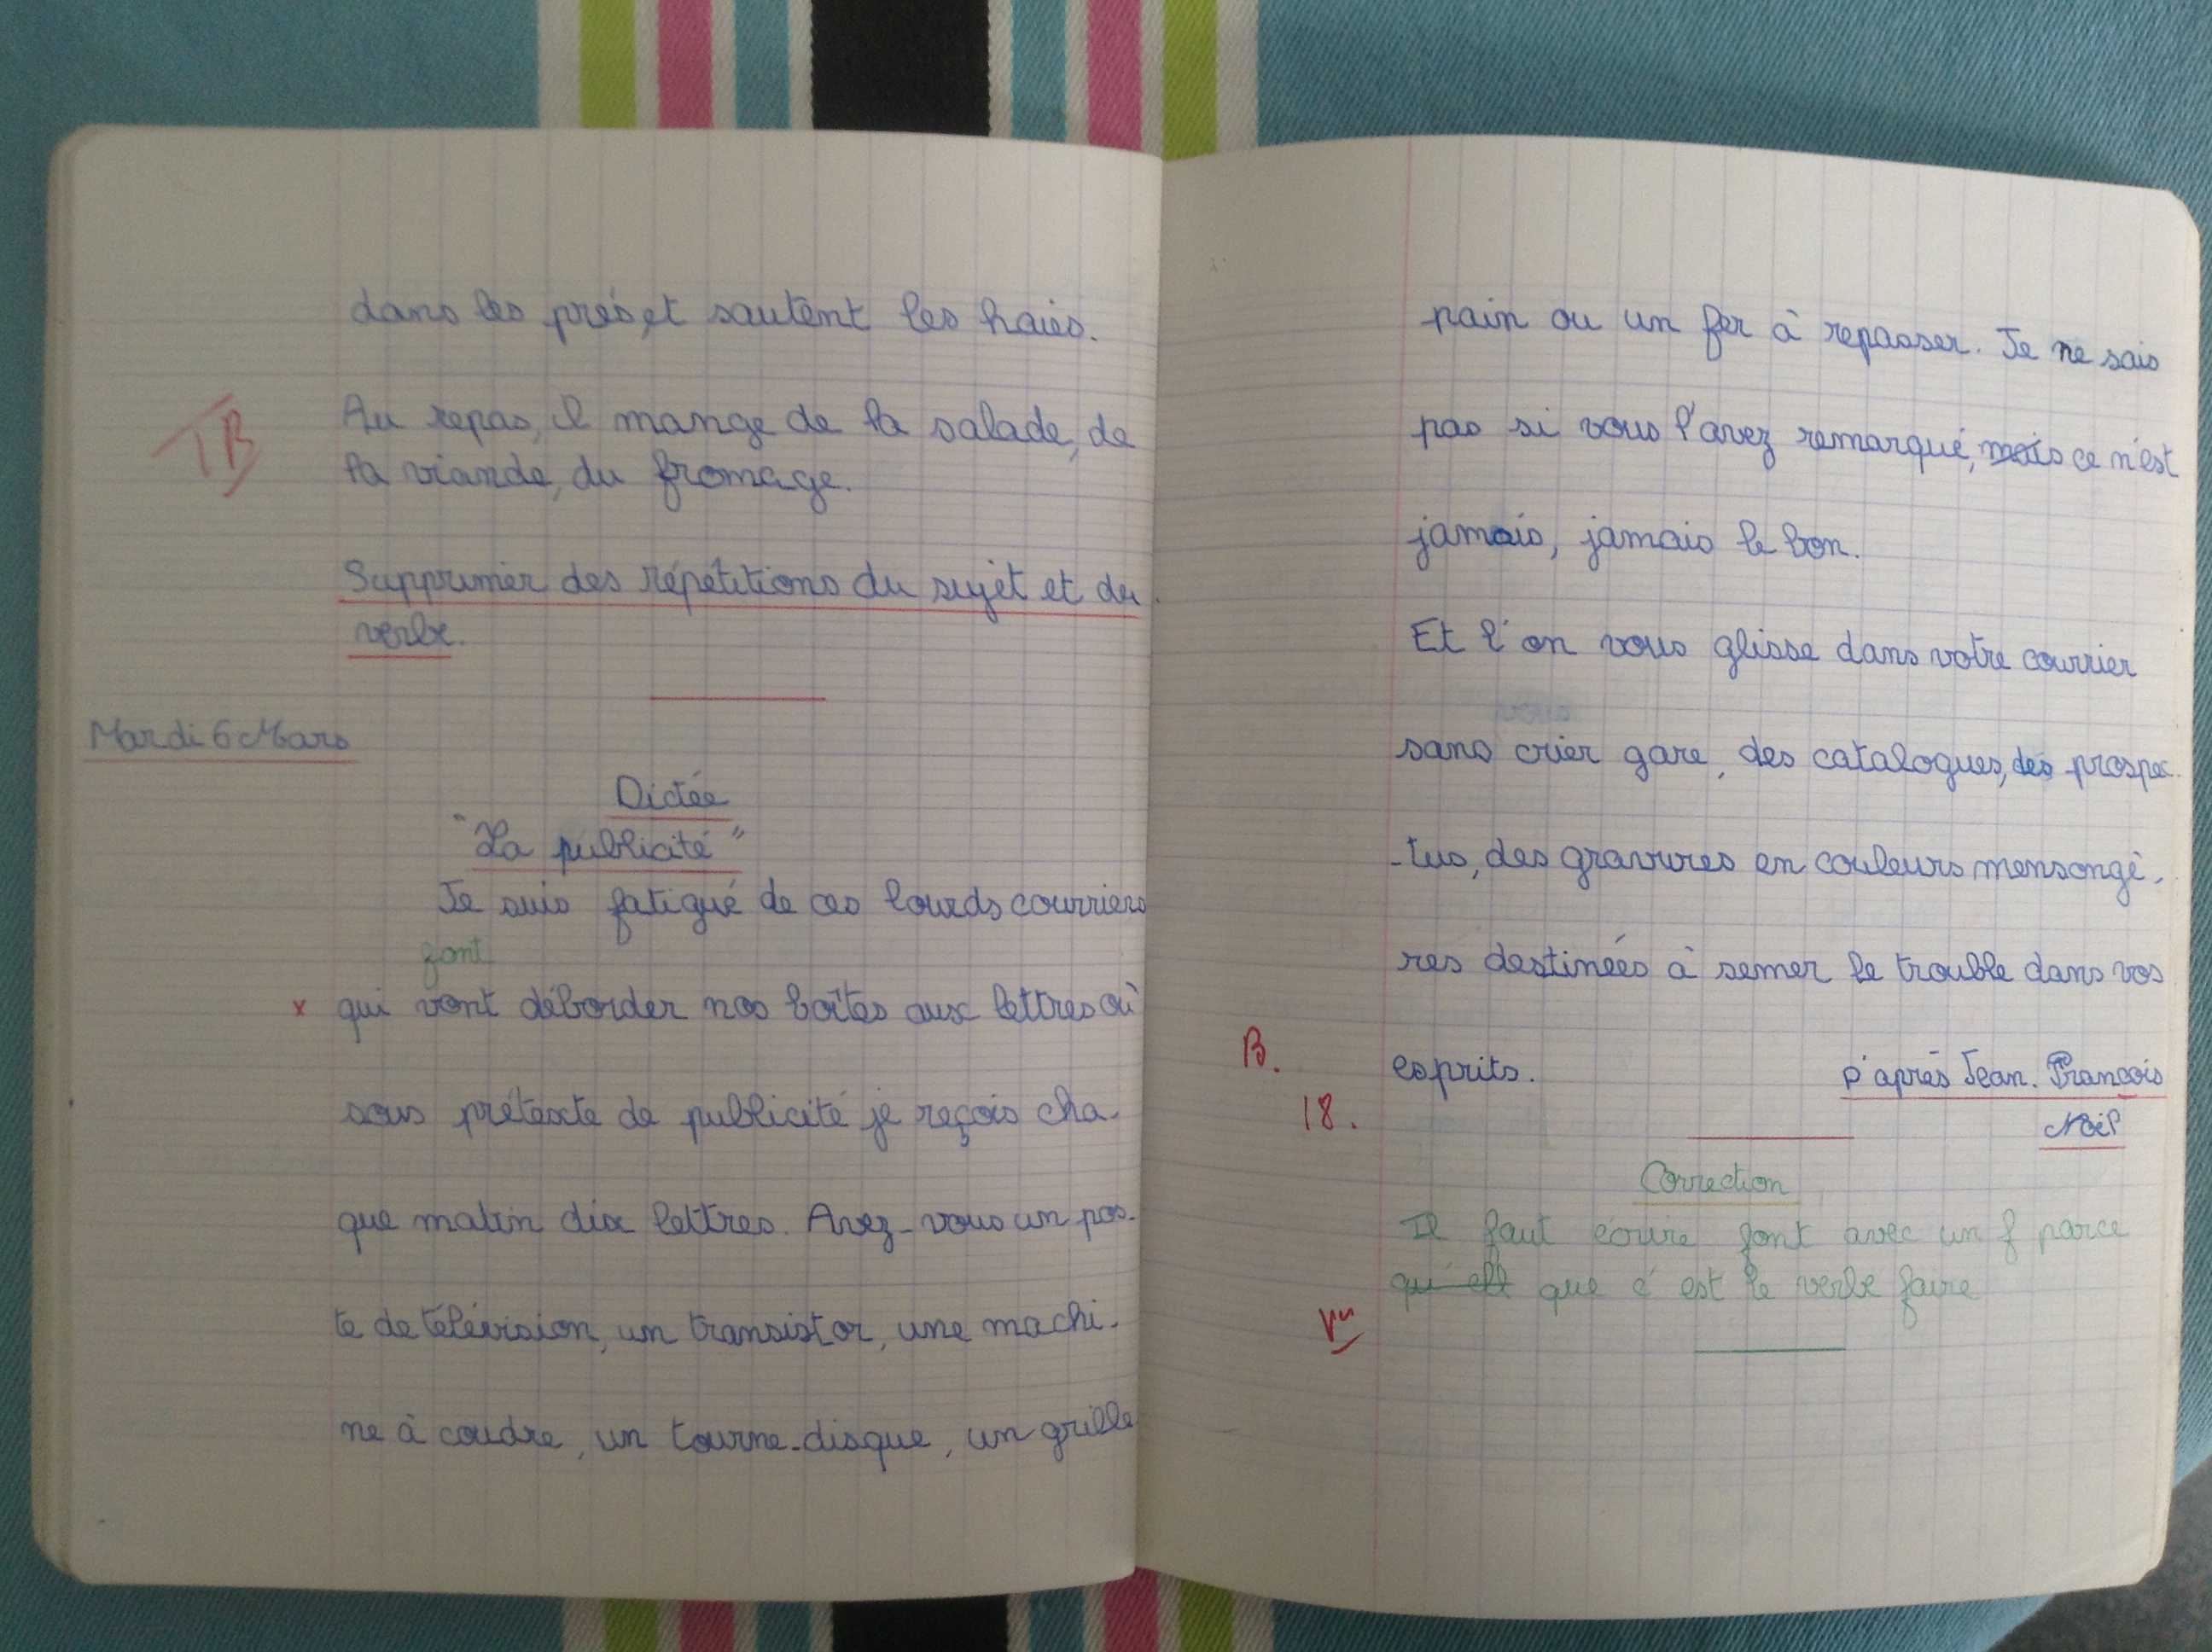 dans les prés, et sautent les haies.
TB
Au repas, il mange de la salade, de
la viande, du fromage.
Supprimer des répétitions du sujet et du
verbe.
Mardi 6 Mars
Dictée
"La publicité"
Je suis fatigué de ces lourds courriers
font
x qui vont déborder nos boîtes aux lettres où
sous prétexte de publicité je reçois cha-
que matin dix lettres. Avez-vous un pos-
te de télévision, un transistor, une machi-
ne à coudre, un tourne-disque, un grille
pain ou un fer à repasser. Je ne sais
pas si vous l'avez remarqué, mais ce n'est
jamais, jamais le bon.
Et l'on vous glisse dans votre courrier
sans crier gare, des catalogues, des prospec-
-tus, des gravures en couleurs mensongè-
res destinées à semer le trouble dans vos
B.
esprits. D'après Jean-François
18.
Noël
Correction
Il faut écrire font avec un f parce
qu'ell que c'est le verbe faire
Vu